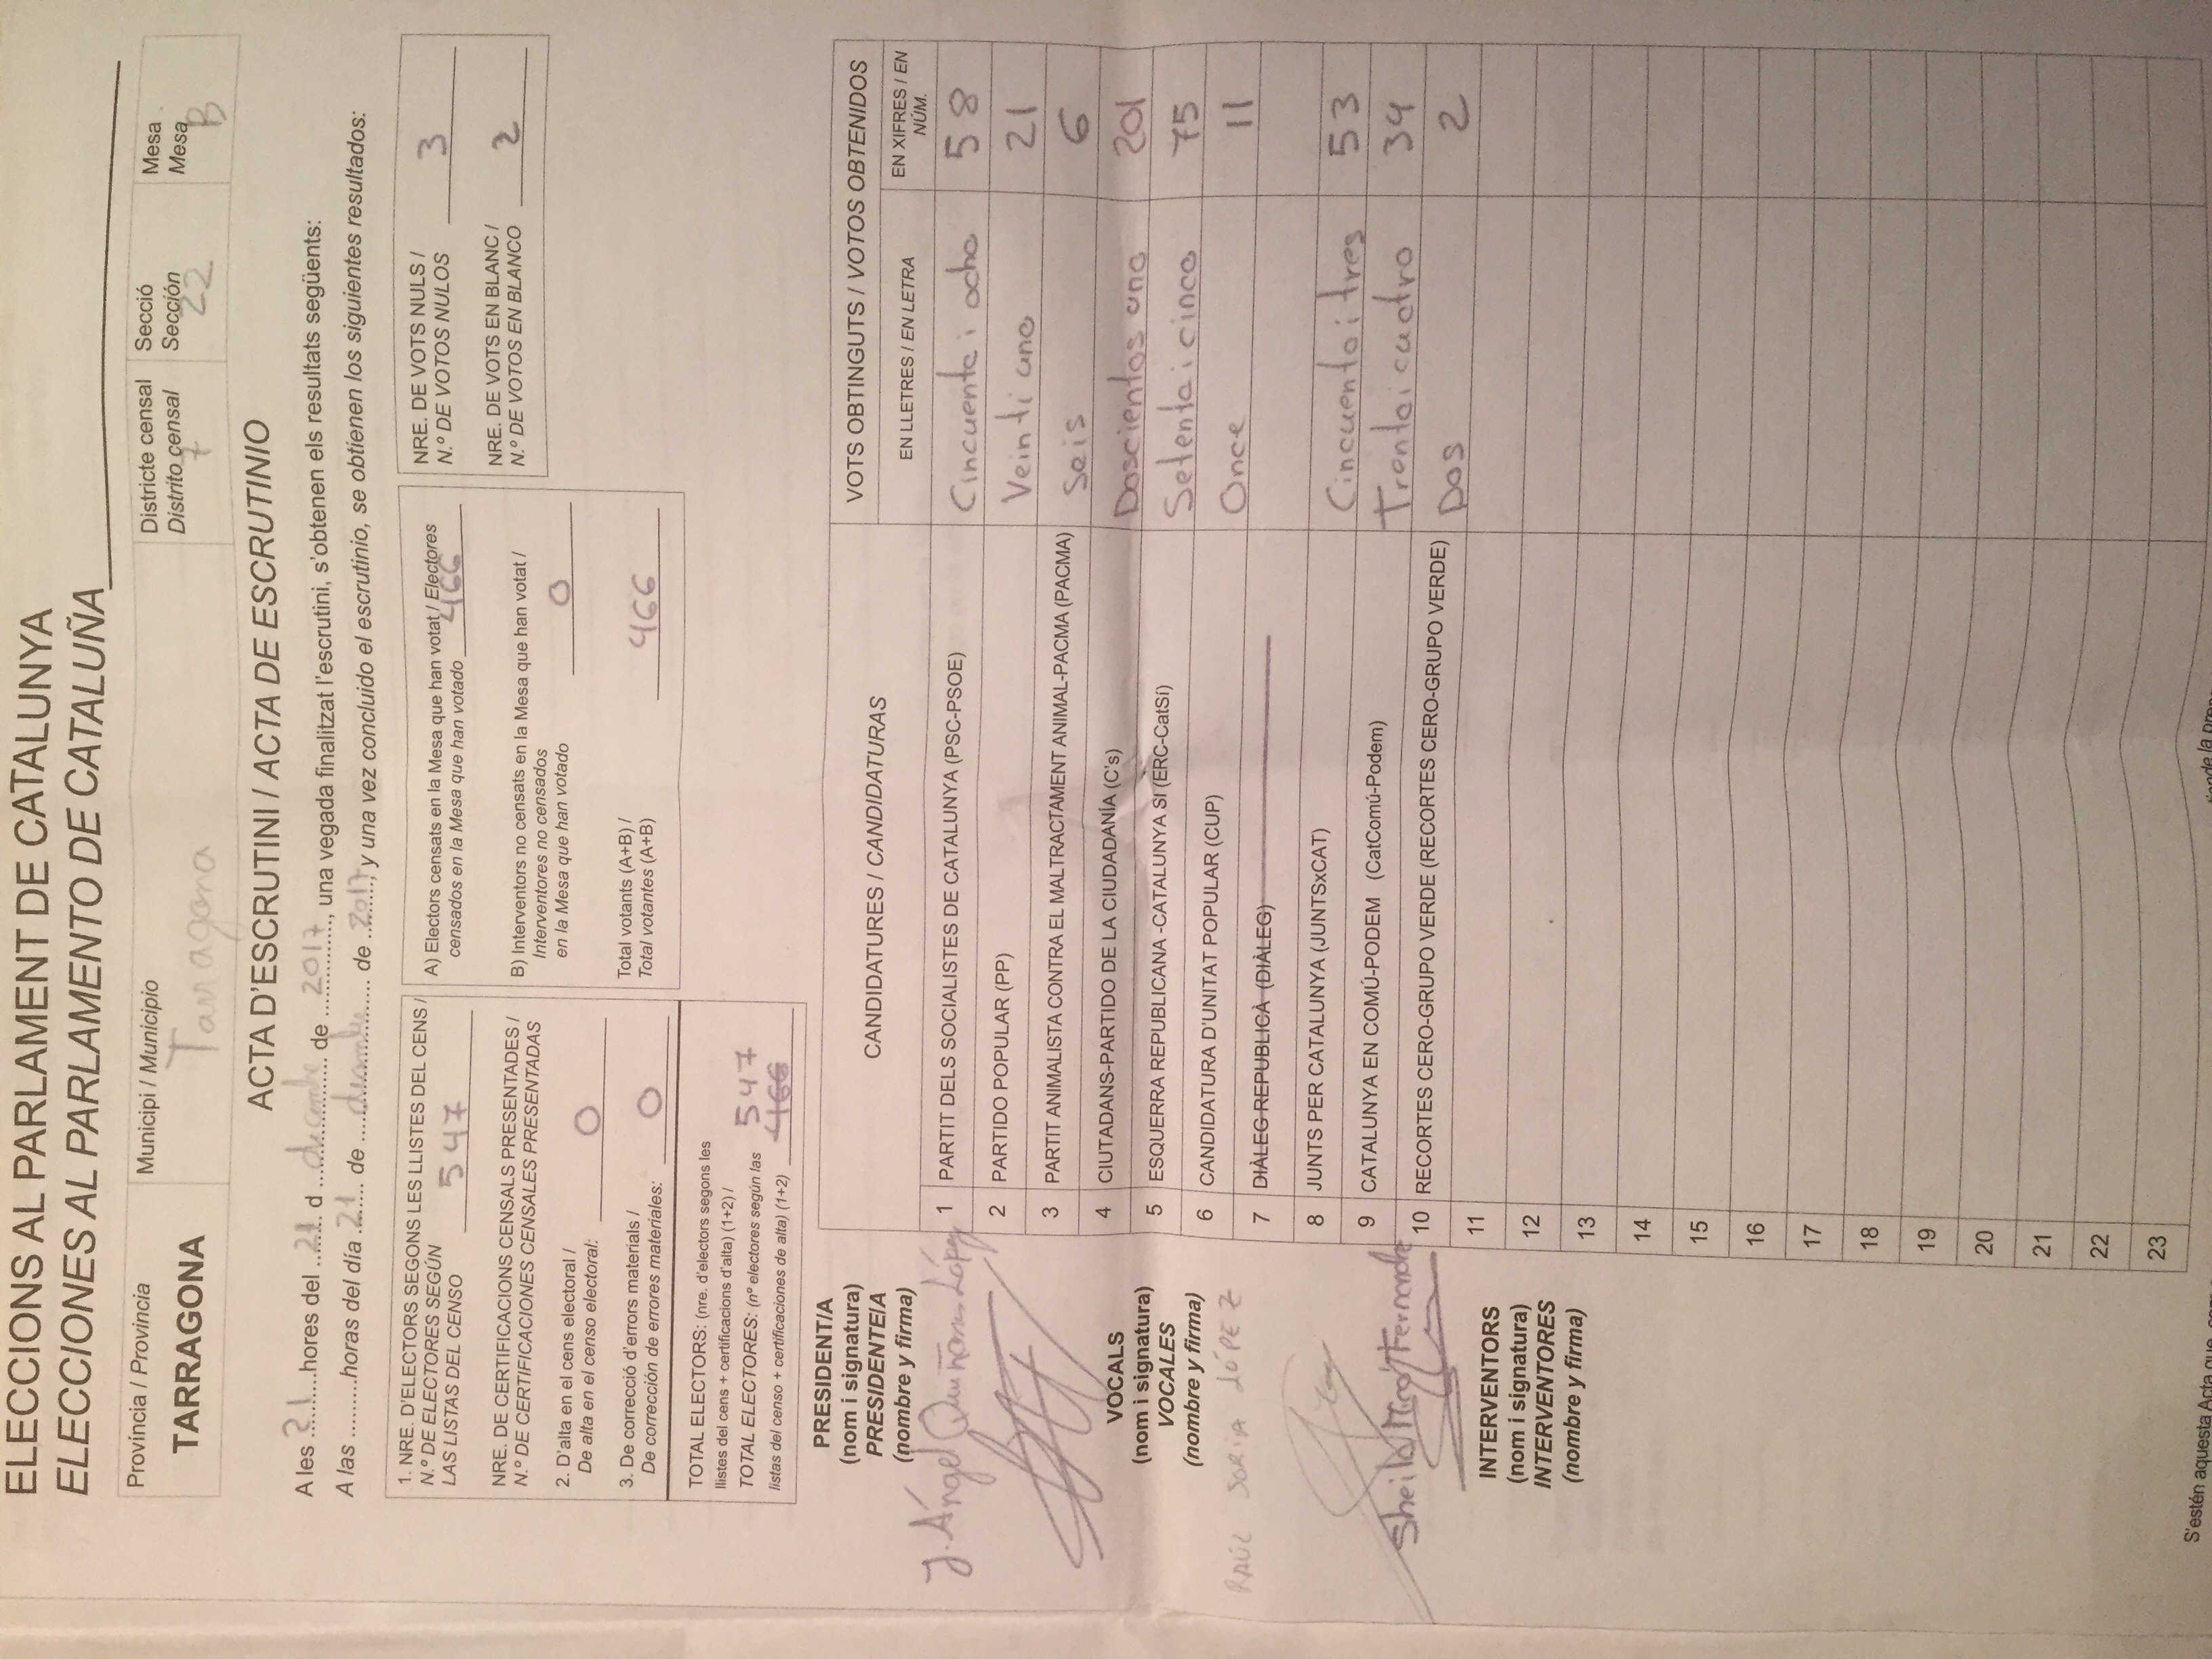 ELECCIONS AL PARLAMENT DE CATALUNYA
ELECCIONES AL PARLAMENTO DE CATALUÑA
Província / Provincia
TARRAGONA
Municipi / Municipio
Tarragona
Districte censal
Distrito censal
7
Secció
Sección
22
Mesa
Mesa
B
ACTA D'ESCRUTINI / ACTA DE ESCRUTINIO
A les 21 hores del 21 d de 2017, una vegada finalitzat l'escrutini, s'obtenen els resultats següents:
A las .........horas del día 21 de de 2017, y una vez concluido el escrutinio, se obtienen los siguientes resultados:
1. NRE. D'ELECTORS SEGONS LES LLISTES DEL CENS /
N.º DE ELECTORES SEGÚN
LAS LISTAS DEL CENSO 547
NRE. DE CERTIFICACIONS CENSALS PRESENTADES /
N.º DE CERTIFICACIONES CENSALES PRESENTADAS
2. D'alta en el cens electoral /
De alta en el censo electoral: 0
3. De correcció d'errors materials /
De corrección de errores materiales: 0
TOTAL ELECTORS: (nre. d'electors segons les
llistes del cens + certificacions d'alta) (1+2) /
TOTAL ELECTORES: (nº electores según las 547
listas del censo + certificaciones de alta) (1+2) 466
A) Electors censats en la Mesa que han votat / Electores
censados en la Mesa que han votado 466
B) Interventors no censats en la Mesa que han votat /
Interventores no censados
en la Mesa que han votado 0
Total votants (A+B) /
Total votantes (A+B) 466
NRE. DE VOTS NULS /
N.º DE VOTOS NULOS 3
NRE. DE VOTS EN BLANC /
N.º DE VOTOS EN BLANCO 2
PRESIDENT/A
(nom i signatura)
PRESIDENTE/A
(nombre y firma)
J. Ángel Quiñones López
VOCALS
(nom i signatura)
VOCALES
(nombre y firma)
RAÚL SORIA LÓPEZ
Sheila
INTERVENTORS
(nom i signatura)
INTERVENTORES
(nombre y firma)
CANDIDATURES / CANDIDATURAS
VOTS OBTINGUTS / VOTOS OBTENIDOS
EN LLETRES / EN LETRA
EN XIFRES / EN
NÚM.
1 PARTIT DELS SOCIALISTES DE CATALUNYA (PSC-PSOE) Cincuenta i ocho 58
2 PARTIDO POPULAR (PP) Veinti uno 21
3 PARTIT ANIMALISTA CONTRA EL MALTRACTAMENT ANIMAL-PACMA (PACMA) Seis 6
4 CIUTADANS-PARTIDO DE LA CIUDADANÍA (C's) Doscientos uno 201
5 ESQUERRA REPUBLICANA -CATALUNYA SÍ (ERC-CatSí) Setenta i cinco 75
6 CANDIDATURA D'UNITAT POPULAR (CUP) Once 11
7 DIÀLEG REPUBLICÀ (DIÀLEG)
8 JUNTS PER CATALUNYA (JUNTSxCAT) Cincuenta i tres 53
9 CATALUNYA EN COMÚ-PODEM (CatComú-Podem) Trenta i cuatro 34
10 RECORTES CERO-GRUPO VERDE (RECORTES CERO-GRUPO VERDE) Dos 2
11
12
13
14
15
16
17
18
19
20
21
22
23
S'estén aquesta Acta que,
la